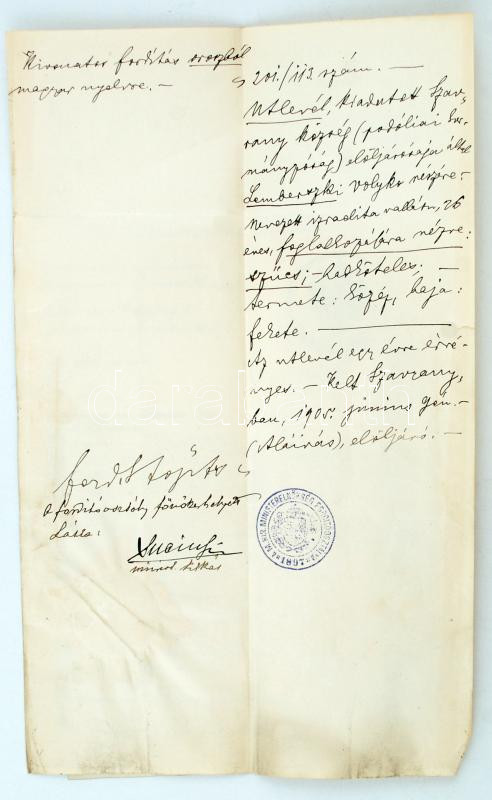 Kivonatos fordítás oroszból
magyar nyelvre. —
201./113. szám. —
Utlevél, kiadatott Szav-
rany község (podóliai kor-
mányzóság) elöljárósága által
Lemberszki Volyko részére.
Nevezett izraelita vallású, 26
éves, foglalkozására nézve:
szücs; – hadköteles. —
termete: közép, haja:
fekete. —
Az utlevél egy évre érvé-
nyes. — Kelt Szavrany-
ban, 1905. június 9én. —
(Aláírás), elöljáró. —
ford.
A fordító osztály főnöke helyett
Látta:
titkár